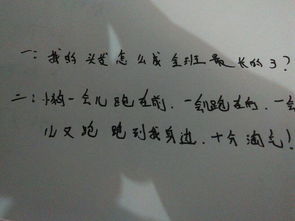 一:我的头发怎么成全班最长的了?
二:小狗一会儿跑在前,一会儿跑在后,一会
儿又跑 跑到我身边,十分淘气!